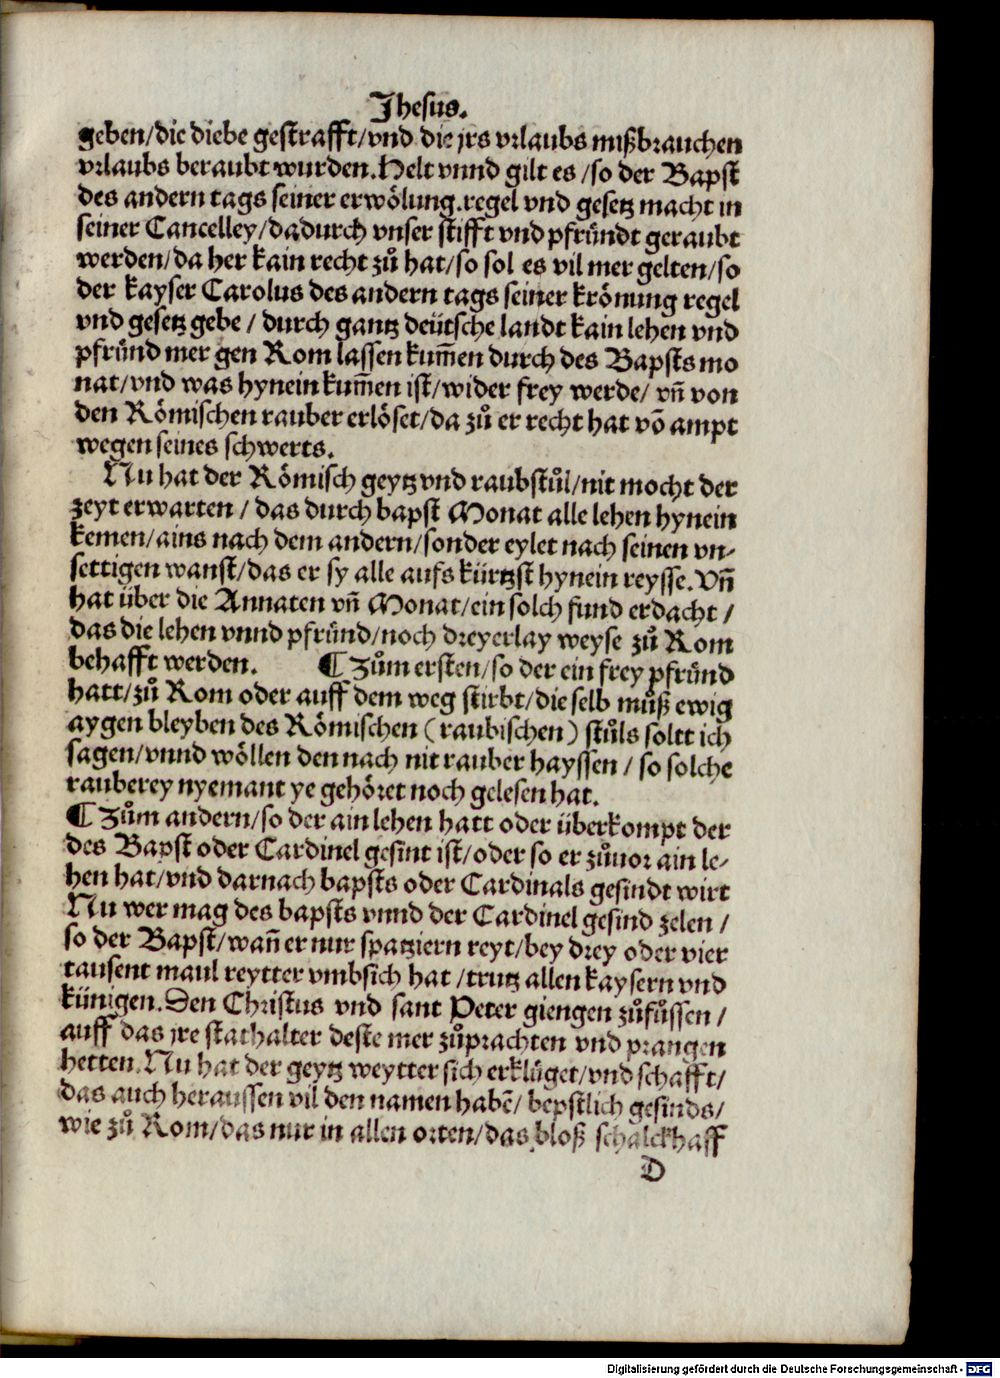 Jhesus.
geben/die diebe gestrafft/vnd die jrs vrlaubs mißbrauchen
vrlaubs beraubt wurden. Helt vnnd gilt es /so der Bapst
des andern tags seiner erwölung. regel vnd gesetz macht in
seiner Cancelley/dadurch vnser stifft vnd pfründt geraubt
werden/da her kain recht zů hat/so sol es vil mer gelten/so
der kayser Carolus des andern tags seiner krönung regel
vnd gesetz gebe / durch gantz deütsche landt kain lehen vnd
pfründ mer gen Rom lassen kum̄en durch des Bapsts mo
nat/vnd was hynein kum̄en ist/wider frey werde/ vn̄ von
den Römischen rauber erlöset/da zů er recht hat vō ampt
wegen seines schwerts.
Nu hat der Römisch geytz vnd raubstůl/nit mocht der
zeyt erwarten / das durch bapst Monat alle lehen hynein
kemen/ains nach dem andern/sonder eylet nach seinen vn-
settigen wanst/das er sy alle aufs kürtzst hynein reysse. Vn̄
hat über die Annaten vn̄ Monat/ein solch fund erdacht /
das die lehen vnnd pfründ/noch dreyerlay weyse zů Rom
behafft werden. ¶ Zům ersten/so der ein frey pfründ
hatt/zů Rom oder auff dem weg stirbt/die selb můß ewig
aygen bleyben des Römischen (raubischen) stůls soltt ich
sagen/vnnd wöllen den nach nit rauber hayssen / so solche
rauberey nyemant ye gehöret noch gelesen hat.
¶ Zům andern/so der ain lehen hatt oder überkompt der
des Bapst oder Cardinel gesint ist/oder so er zůuor ain le-
hen hat/vnd darnach bapsts oder Cardinals gesindt wirt
Nu wer mag des bapsts vnnd der Cardinel gesind zelen /
so der Bapst/wan̄ er nur spatziern reyt/bey drey oder vier
tausent maul reytter vmbsich hat /trutz allen kaysern vnd
künigen. Den Christus vnd sant Peter giengen zůfůssen /
auff das jre stathalter deste mer zůprachten vnd prangen
hetten. Nu hat der geytz weytter sich erklüget/vnd schafft/
das auch heraussen vil den namen habē/ bepstlich gesinds/
wie zů Rom/das nur in allen orten/das bloß schalckhaff
D
Digitalisierung gefördert durch die Deutsche Forschungsgemeinschaft - DFG